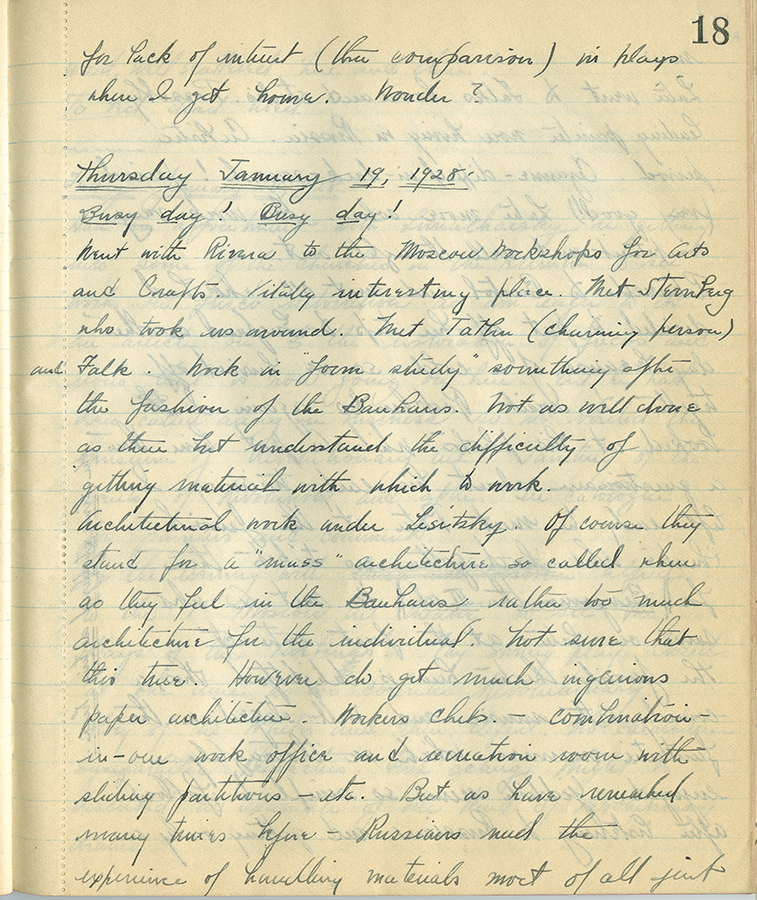 18
for lack of interest (thru comparison) in plays
when I get home. Wonder?
Thursday January 19, 1928.
Busy day! Busy day!
Went with Rivera to the Moscow Workshops for Arts
and Crafts. Vitally interesting place. Met Sternberg
who took us around. Met Tatlin (charming person)
and Falk. Work in "form study" something after
the fashion of the Bauhaus. Not as well done
as there but understand the difficulty of
getting material with which to work.
Architectural work under Lesitsky. Of course they
stand for a "mass" architecture so called where
as they feel in the Bauhaus rather too much
architecture for the individual. Not sure that
this true. However do get much ingenious
paper architecture. Workers clubs. – combination-
in-one work office and recreation room with
sliding partitions – etc. But as have remarked
many times before – Russians need the
experience of handling materials most of all just